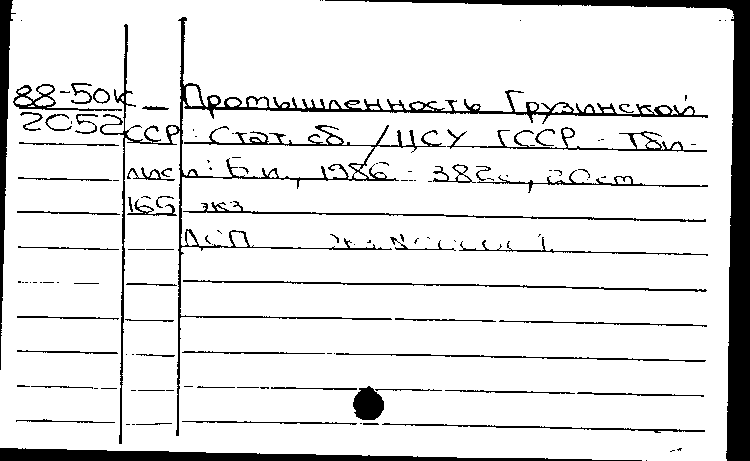 88-50к Промышленность Грузинской
2052 ССР: Стат. сб. / ЦСУ ГССР. - Тби-
лиси: Б.и., 1986 - 382с., 20 см.
165 экз.
ДСП Экз. N